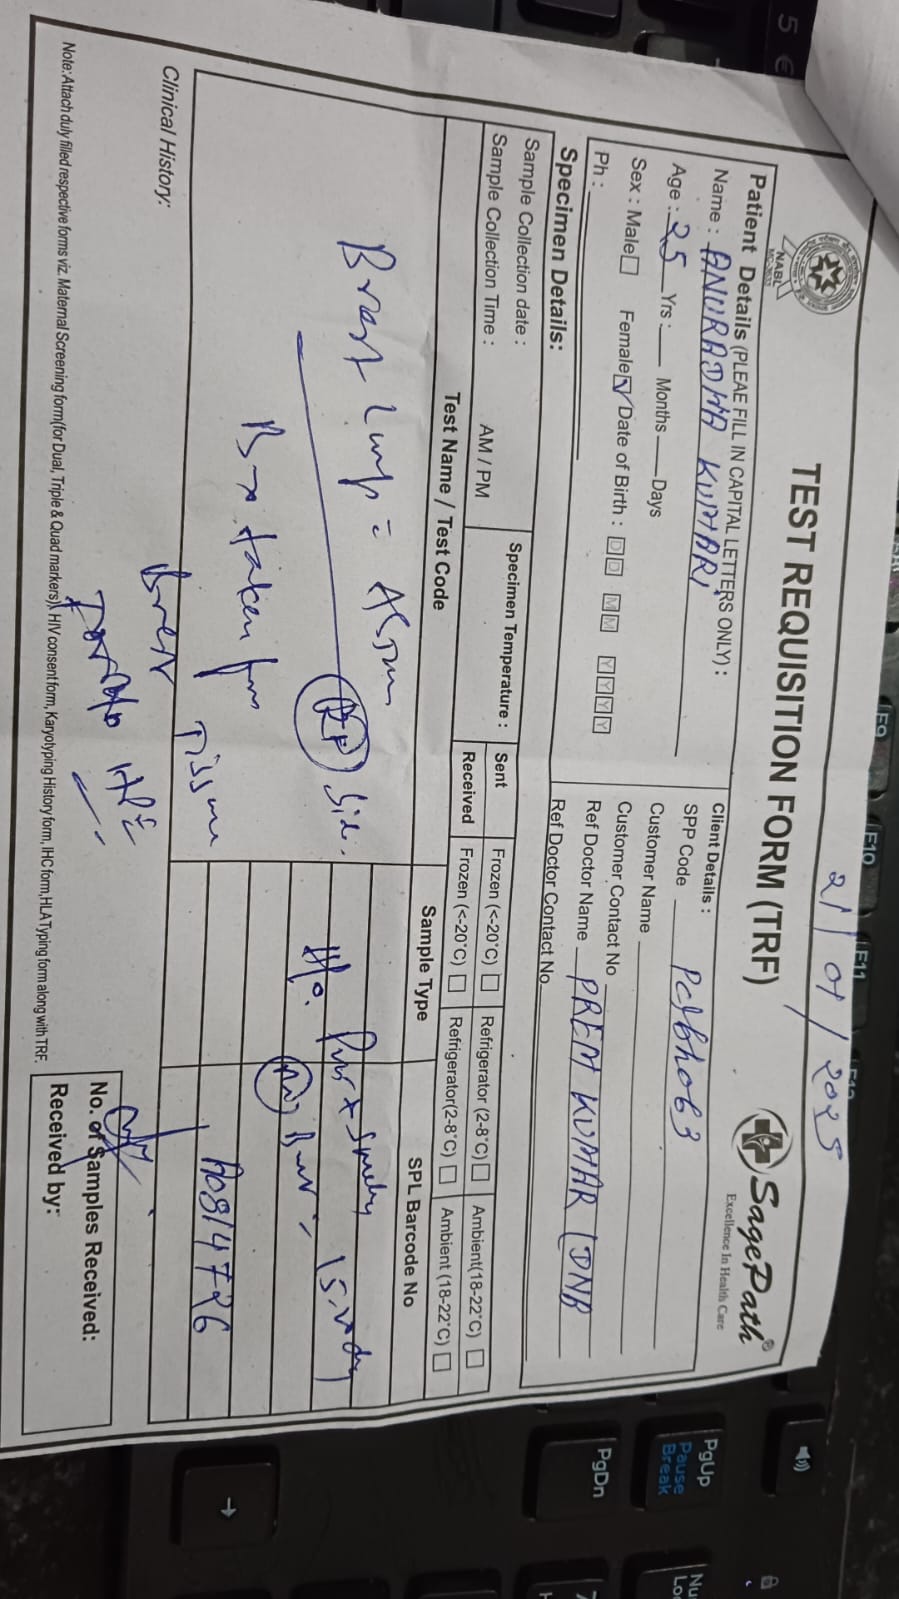 21/01/2025
TEST REQUISITION FORM (TRF)
SagePath®
Excellence In Health Care
NABL
Patient Details (PLEAE FILL IN CAPITAL LETTERS ONLY) :
Name : ANURADHA KUMARI
Age : 25 Yrs : Months Days
Sex : Male Female Date of Birth : D D M M Y Y Y Y
Ph :
Client Details :
SPP Code
Customer Name
Customer Contact No
Ref Doctor Name PREM KUMAR (DNB
Ref Doctor Contact No
Specimen Details:
Sample Collection date :
Sample Collection Time : AM / PM
Specimen Temperature :
Sent Frozen (<-20°C) Refrigerator (2-8°C) Ambient(18-22°C)
Received Frozen (<-20°C) Refrigerator(2-8°C) Ambient (18-22°C)
Test Name / Test Code
Sample Type
SPL Barcode No
Breast Lump =
Rt side
Bx taken from
Breast Tissue
HPE
H/o.
A0814726
Clinical History:
No. of Samples Received:
Received by:
Note: Attach duly filled respective forms viz. Maternal Screening form(for Dual, Triple & Quad markers), HIV consent form, Karyotyping History form, IHC form, HLA Typing form along with TRF.
5 €
F9
F10
F11
PgUp
Pause
Break
PgDn
Nu
Lo